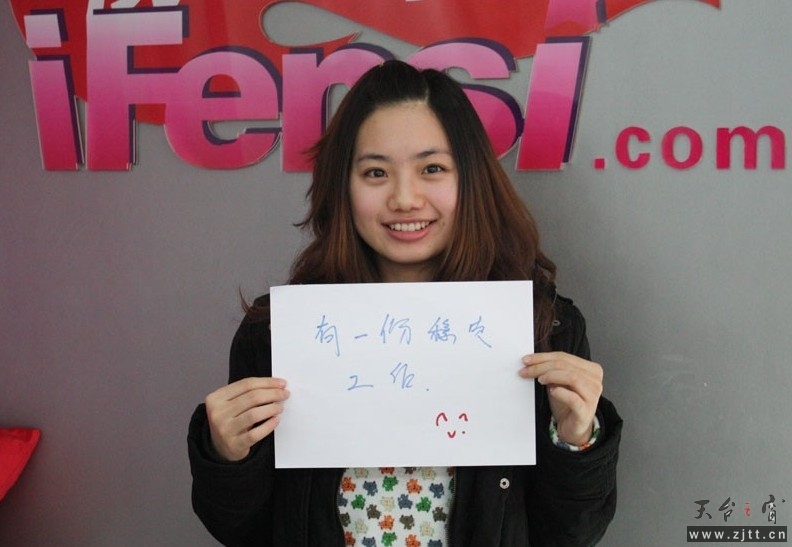 iFensi.com
有一份稳定
工作.
天台之窗
www.zjtt.cn